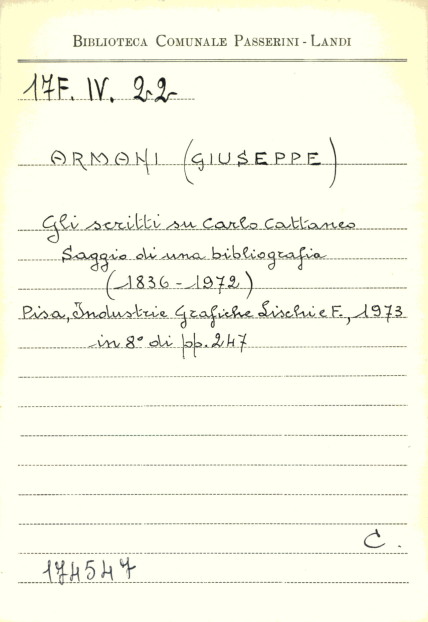 BIBLIOTECA COMUNALE PASSERINI - LANDI
17F. IV. 22
ARMANI (GIUSEPPE)
Gli scritti su Carlo Cattaneo
Saggio di una bibliografia
(1836 - 1972)
Pisa, Industrie Grafiche Lischi e F., 1973
in 8° di pp. 247
C.
174547